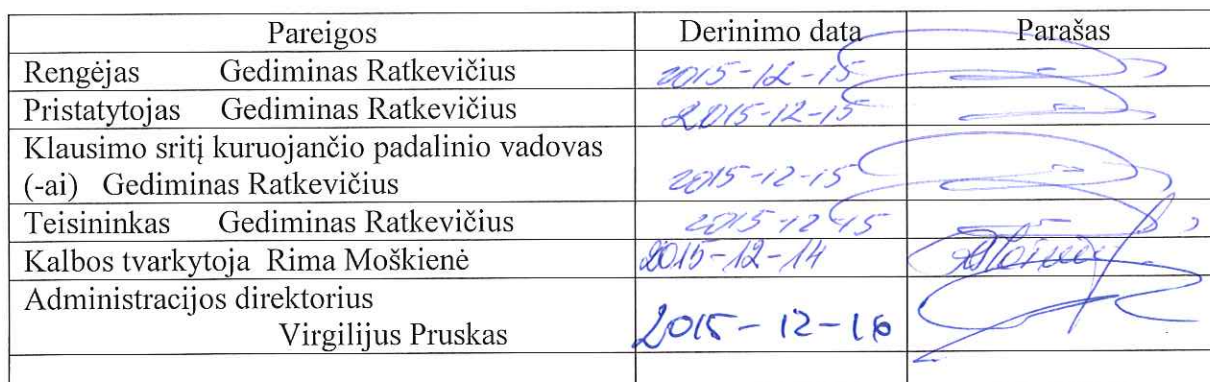 Pareigos Derinimo data Parašas
Rengėjas Gediminas Ratkevičius 2015-12-15
Pristatytojas Gediminas Ratkevičius 2015-12-15
Klausimo sritį kuruojančio padalinio vadovas
(-ai) Gediminas Ratkevičius 2015-12-15
Teisininkas Gediminas Ratkevičius 2015-12-15
Kalbos tvarkytoja Rima Moškienė 2015-12-14
Administracijos direktorius
Virgilijus Pruskas 2015-12-16